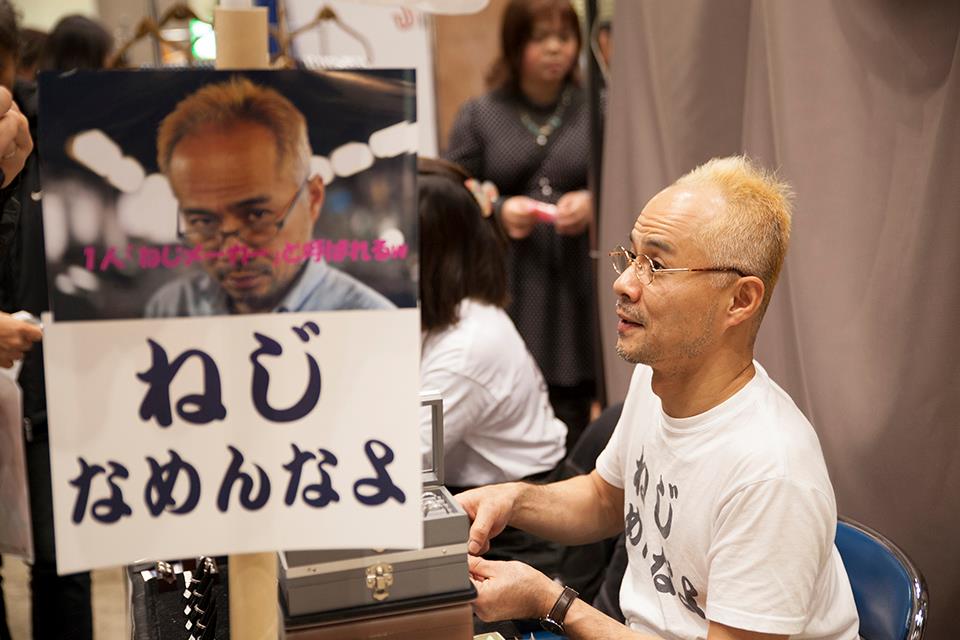 1人「ねじメーカー」と呼ばれるw
ねじ
なめんなよ
ねじ
なめんなよ